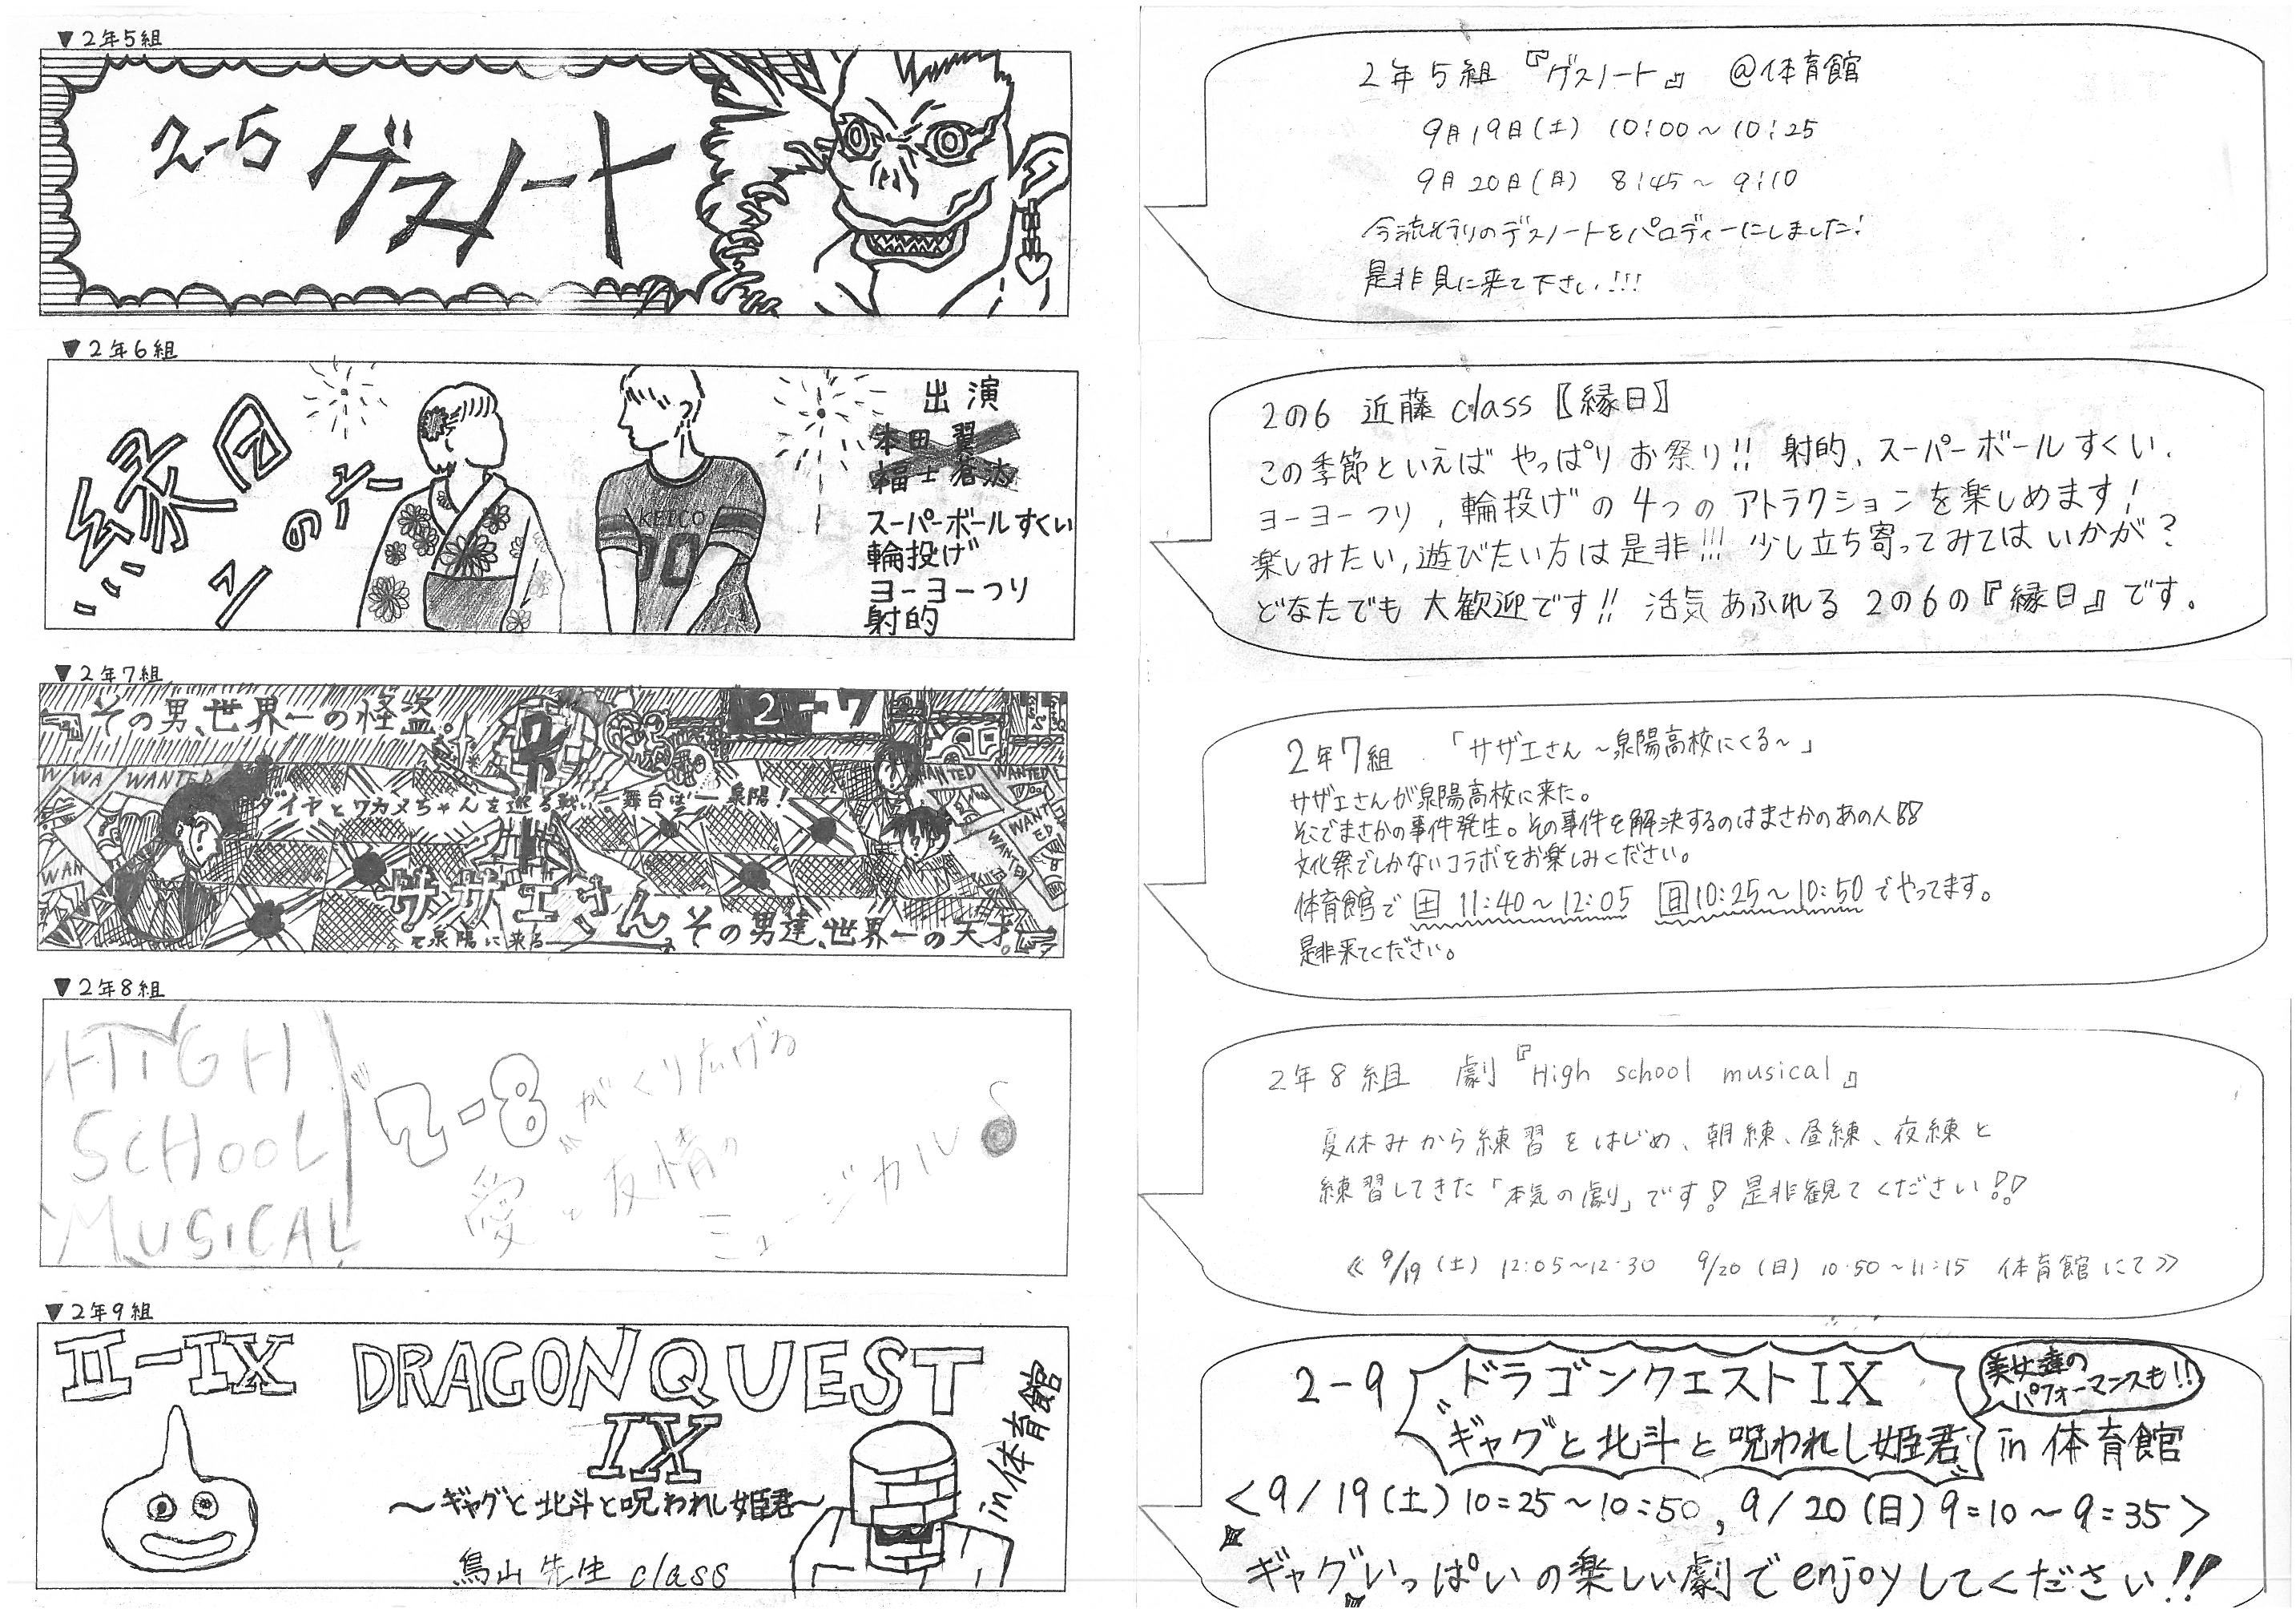 ▼2年5組
2-5 ゲスノート
2年5組 『ゲスノート』 @体育館
9月19日(土) 10:00~10:25
9月20日(月) 8:45~9:10
今流行りのデスノートをパロディーにしました!
是非見に来て下さい!!!
▼2年6組
縁日
2の6
出演
本田 翼
福士 蒼汰
スーパーボールすくい
輪投げ
ヨーヨーつり
射的
KEICO
2の6 近藤 class 〖縁日〗
この季節といえば やっぱり お祭り!! 射的、スーパーボールすくい、
ヨーヨーつり、輪投げの4つのアトラクションを楽しめます!
楽しみたい,遊びたい方は是非!!! 少し立ち寄ってみてはいかが?
どなたでも 大歓迎です!! 活気あふれる 2の6の『縁日』です。
▼2年7組
その男、世界一の怪盗。
2-7
WANTED
WANTED
WANTED
ダイヤとワカメちゃんを巡る戦い 舞台は 泉陽!
サザエさん
泉陽に来る
その男達、世界一の天才。
2年7組 「サザエさん ~泉陽高校にくる~」
サザエさんが泉陽高校に来た。
そこでまさかの事件発生。その事件を解決するのはまさかのあの人!?!?
文化祭でしかないコラボをお楽しみください。
体育館で 土 11:40~12:05 日 10:25~10:50 でやってます。
是非来てください。
▼2年8組
HIGH
SCHOOL
MUSICAL
"2-8"がくり広げる
愛と友情の
ミュージカル♪
2年8組 劇『High school musical』
夏休みから練習をはじめ、朝練、昼練、夜練と
練習してきた「本気の劇」です! 是非観てください!!
≪ 9/19 (土) 12:05~12:30 9/20 (日) 10:50~11:15 体育館にて≫
▼2年9組
II-IX DRAGON QUEST
IX
~ギャグと北斗と呪われし姫君~
鳥山先生 class
in体育館
2-9 ドラゴンクエストIX
美女達の
パフォーマンスも!!
"ギャグと北斗と呪われし姫君" in 体育館
<9/19(土)10:25~10:50, 9/20(日)9:10~9:35>
ギャグいっぱいの楽しい劇でenjoyしてください!!